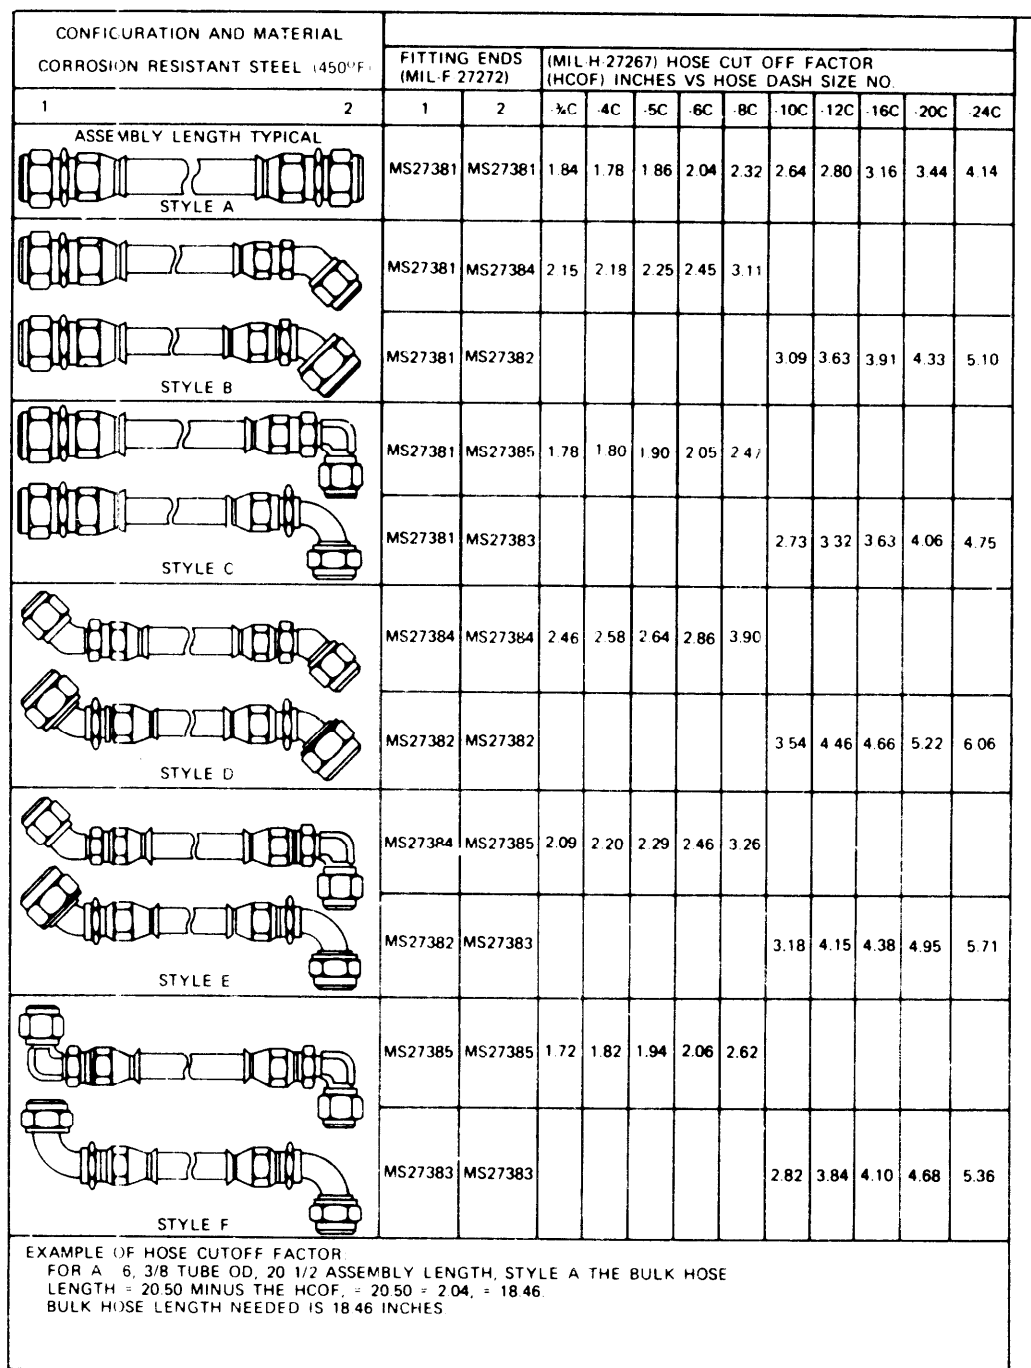 CONFIGURATION AND MATERIAL
CORROSION RESISTANT STEEL (450°F)
FITTING ENDS
(MIL-F 27272)
(MIL-H-27267) HOSE CUT OFF FACTOR
(HCOF) INCHES VS HOSE DASH SIZE NO.
1 2 1 2 -4C -5C -6C -8C -10C -12C -16C -20C -24C
ASSEMBLY LENGTH TYPICAL
MS27381 MS27381 1.84 1.78 1.86 2.04 2.32 2.64 2.80 3.16 3.44 4.14
STYLE A
MS27381 MS27384 2.15 2.18 2.25 2.45 3.11
MS27381 MS27382 3.09 3.63 3.91 4.33 5.10
STYLE B
MS27381 MS27385 1.78 1.80 1.90 2.05 2.47
MS27381 MS27383 2.73 3.32 3.63 4.06 4.75
STYLE C
MS27384 MS27384 2.46 2.58 2.64 2.86 3.90
MS27382 MS27382 3.54 4.46 4.66 5.22 6.06
STYLE D
MS27384 MS27385 2.09 2.20 2.29 2.46 3.26
MS27382 MS27383 3.18 4.15 4.38 4.95 5.71
STYLE E
MS27385 MS27385 1.72 1.82 1.94 2.06 2.62
MS27383 MS27383 2.82 3.84 4.10 4.68 5.36
STYLE F
EXAMPLE OF HOSE CUTOFF FACTOR.
FOR A 6, 3/8 TUBE OD, 20 1/2 ASSEMBLY LENGTH, STYLE A THE BULK HOSE
LENGTH = 20.50 MINUS THE HCOF, = 20.50 = 2.04, = 18.46.
BULK HOSE LENGTH NEEDED IS 18.46 INCHES